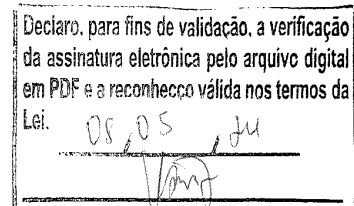 Declaro, para fins de validação, a verificação
da assinatura eletrônica pelo arquivo digital
em PDF e a reconheço válida nos termos da
Lei.
08, 05,